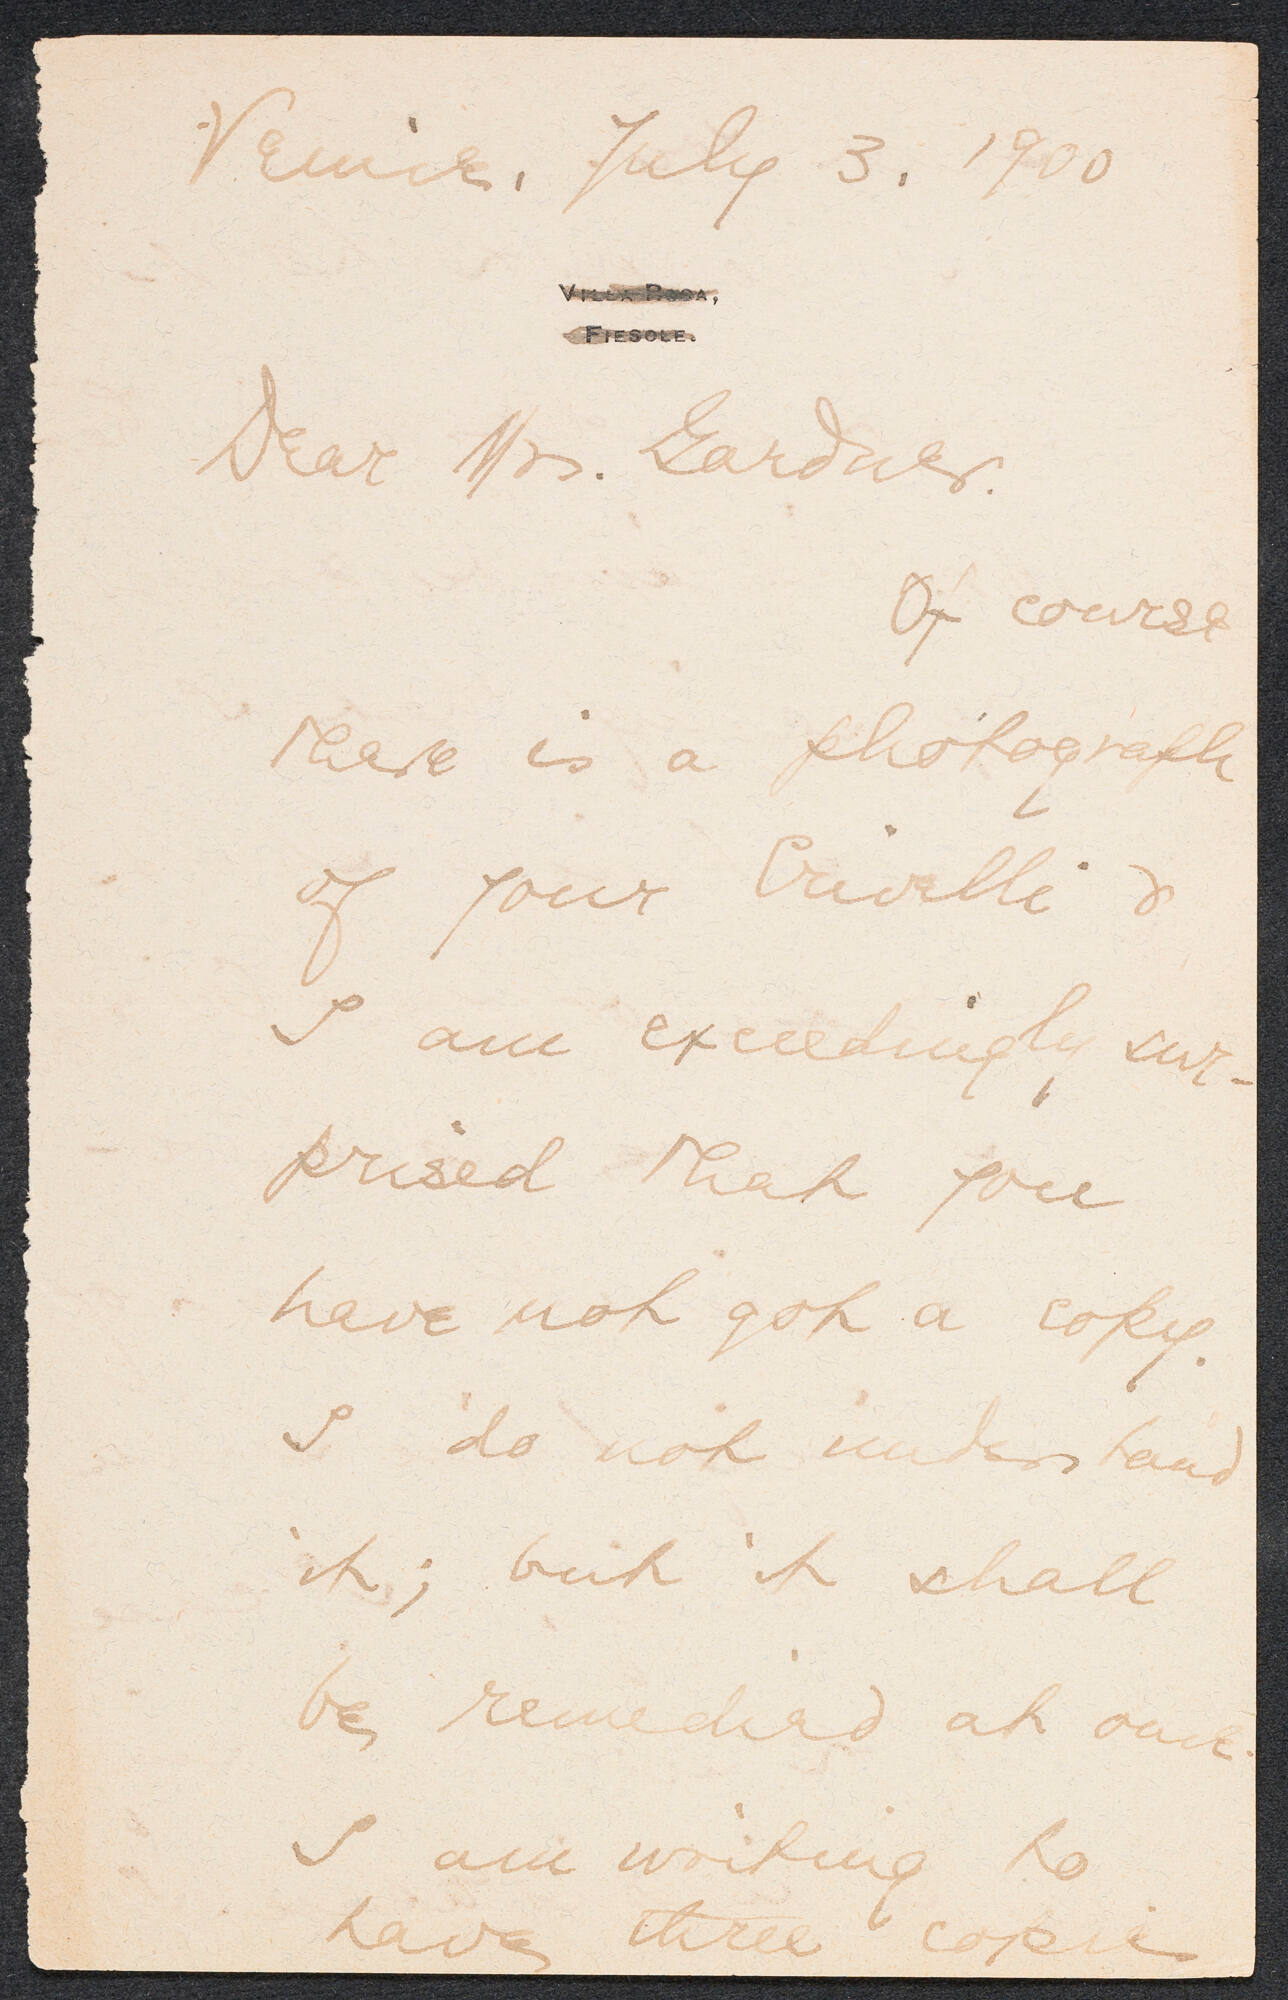 Venice, July 3, 1900
VILLA ROSA,
FIESOLE.
Dear Mrs. Gardner.
Of course
there is a photograph
of your Crivelli &
I am exceedingly sur-
prised that you
have not got a copy.
I do not understand
it; but it shall
be remedied at once.
I am writing to
have three copies